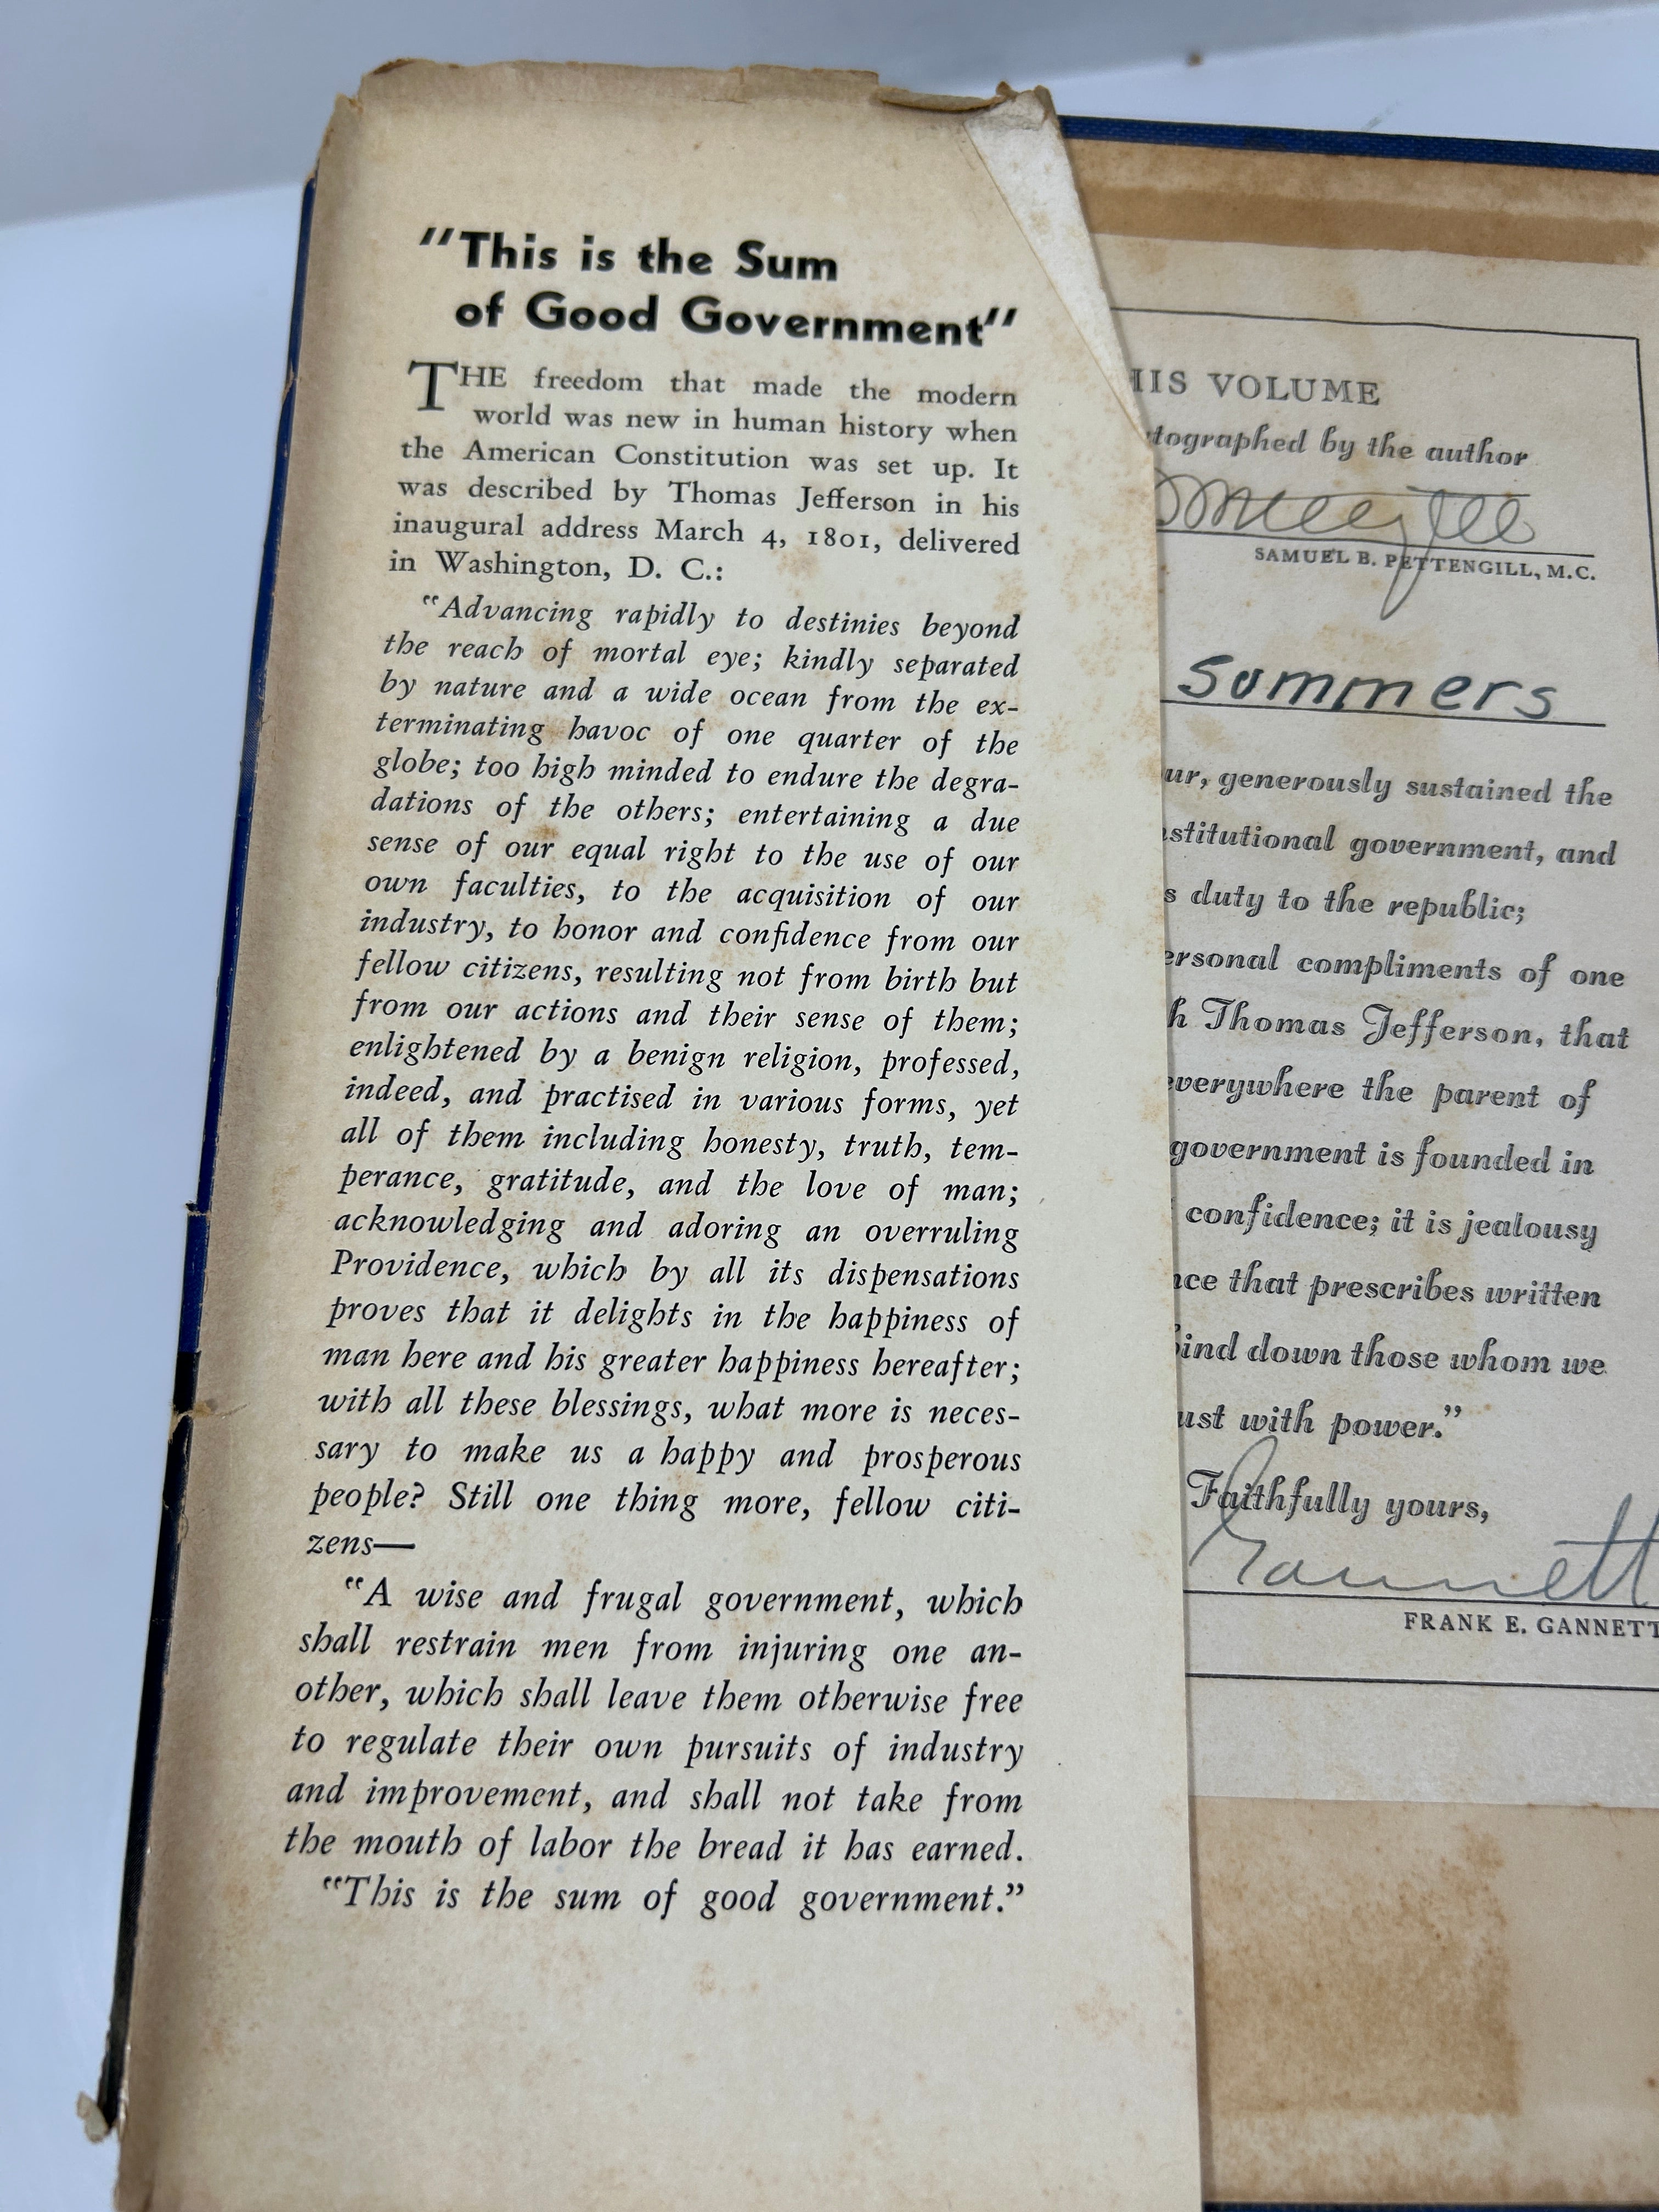 "This is the Sum
of Good Government"
THE freedom that made the modern
world was new in human history when
the American Constitution was set up. It
was described by Thomas Jefferson in his
inaugural address March 4, 1801, delivered
in Washington, D. C.:
"Advancing rapidly to destinies beyond
the reach of mortal eye; kindly separated
by nature and a wide ocean from the ex-
terminating havoc of one quarter of the
globe; too high minded to endure the degra-
dations of the others; entertaining a due
sense of our equal right to the use of our
own faculties, to the acquisition of our
industry, to honor and confidence from our
fellow citizens, resulting not from birth but
from our actions and their sense of them;
enlightened by a benign religion, professed,
indeed, and practised in various forms, yet
all of them including honesty, truth, tem-
perance, gratitude, and the love of man;
acknowledging and adoring an overruling
Providence, which by all its dispensations
proves that it delights in the happiness of
man here and his greater happiness hereafter;
with all these blessings, what more is neces-
sary to make us a happy and prosperous
people? Still one thing more, fellow citi-
zens—
"A wise and frugal government, which
shall restrain men from injuring one an-
other, which shall leave them otherwise free
to regulate their own pursuits of industry
and improvement, and shall not take from
the mouth of labor the bread it has earned.
"This is the sum of good government."
VOLUME
by the author
SAMUEL B. PETTENGILL, M.C.
Summers
generously sustained the
government, and
duty to the republic;
compliments of one
Thomas Jefferson, that
the parent of
government is founded in
confidence; it is jealousy
that prescribes written
down those whom we
with power."
Faithfully yours,
Gannett
FRANK E. GANNETT